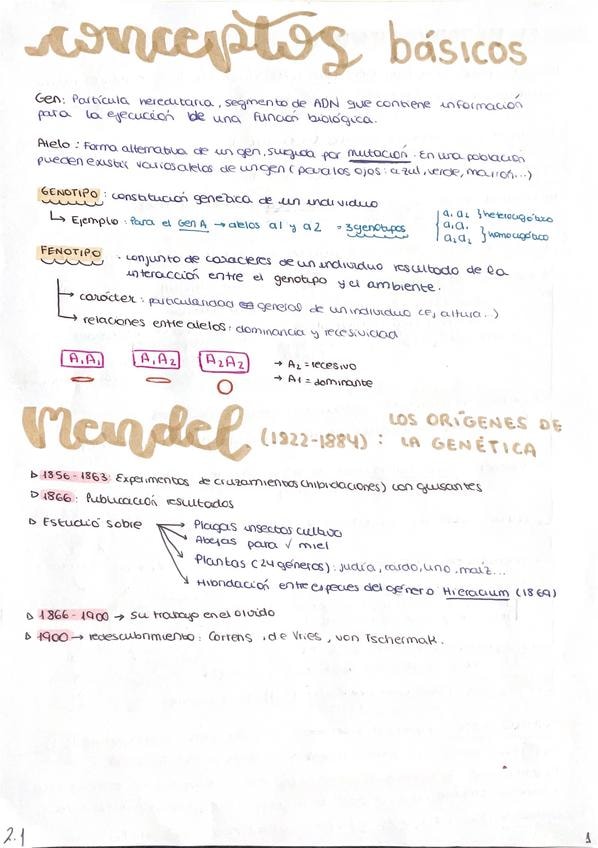 conceptos básicos
Gen: Partícula hereditaria, segmento de ADN que contiene información
para la ejecución de una función biológica.
Alelo: Forma alternativa de un gen, surgida por mutación. En una población
pueden existir varios alelos de un gen (para los ojos: azul, verde, marrón...)
GENOTIPO: constitución genética de un individuo
↳ Ejemplo: Para el Gen A → alelos a1 y a2 = 3 genotipos
a₁ a₂ } heterocigótico
a₁ a₁
a₂ a₂ } homocigótico
FENOTIPO: conjunto de caracteres de un individuo resultado de la
interacción entre el genotipo y el ambiente.
→ carácter: particularidad general de un individuo (ej, altura..)
→ relaciones entre alelos: dominancia y recesividad
A₁A₁ A₁A₂ A₂A₂
→ A₂ = recesivo
→ A1 = dominante
Mendel (1822-1884): LOS ORÍGENES DE
LA GENÉTICA
▷ 1856-1863: Experimentos de cruzamientos (hibridaciones) con guisantes
▷ 1866: Publicación resultados
▷ Estudió sobre → Plagas insectos cultivo
→ Abejas para √ miel
→ Plantas (24 géneros): judía, cardo, lino, maíz...
→ Hibridación entre especies del género Hieracium (1869)
▷ 1866-1900 → su trabajo en el olvido
▷ 1900 → redescubrimiento: Correns, de Vries, von Tschermak.
2.1
1